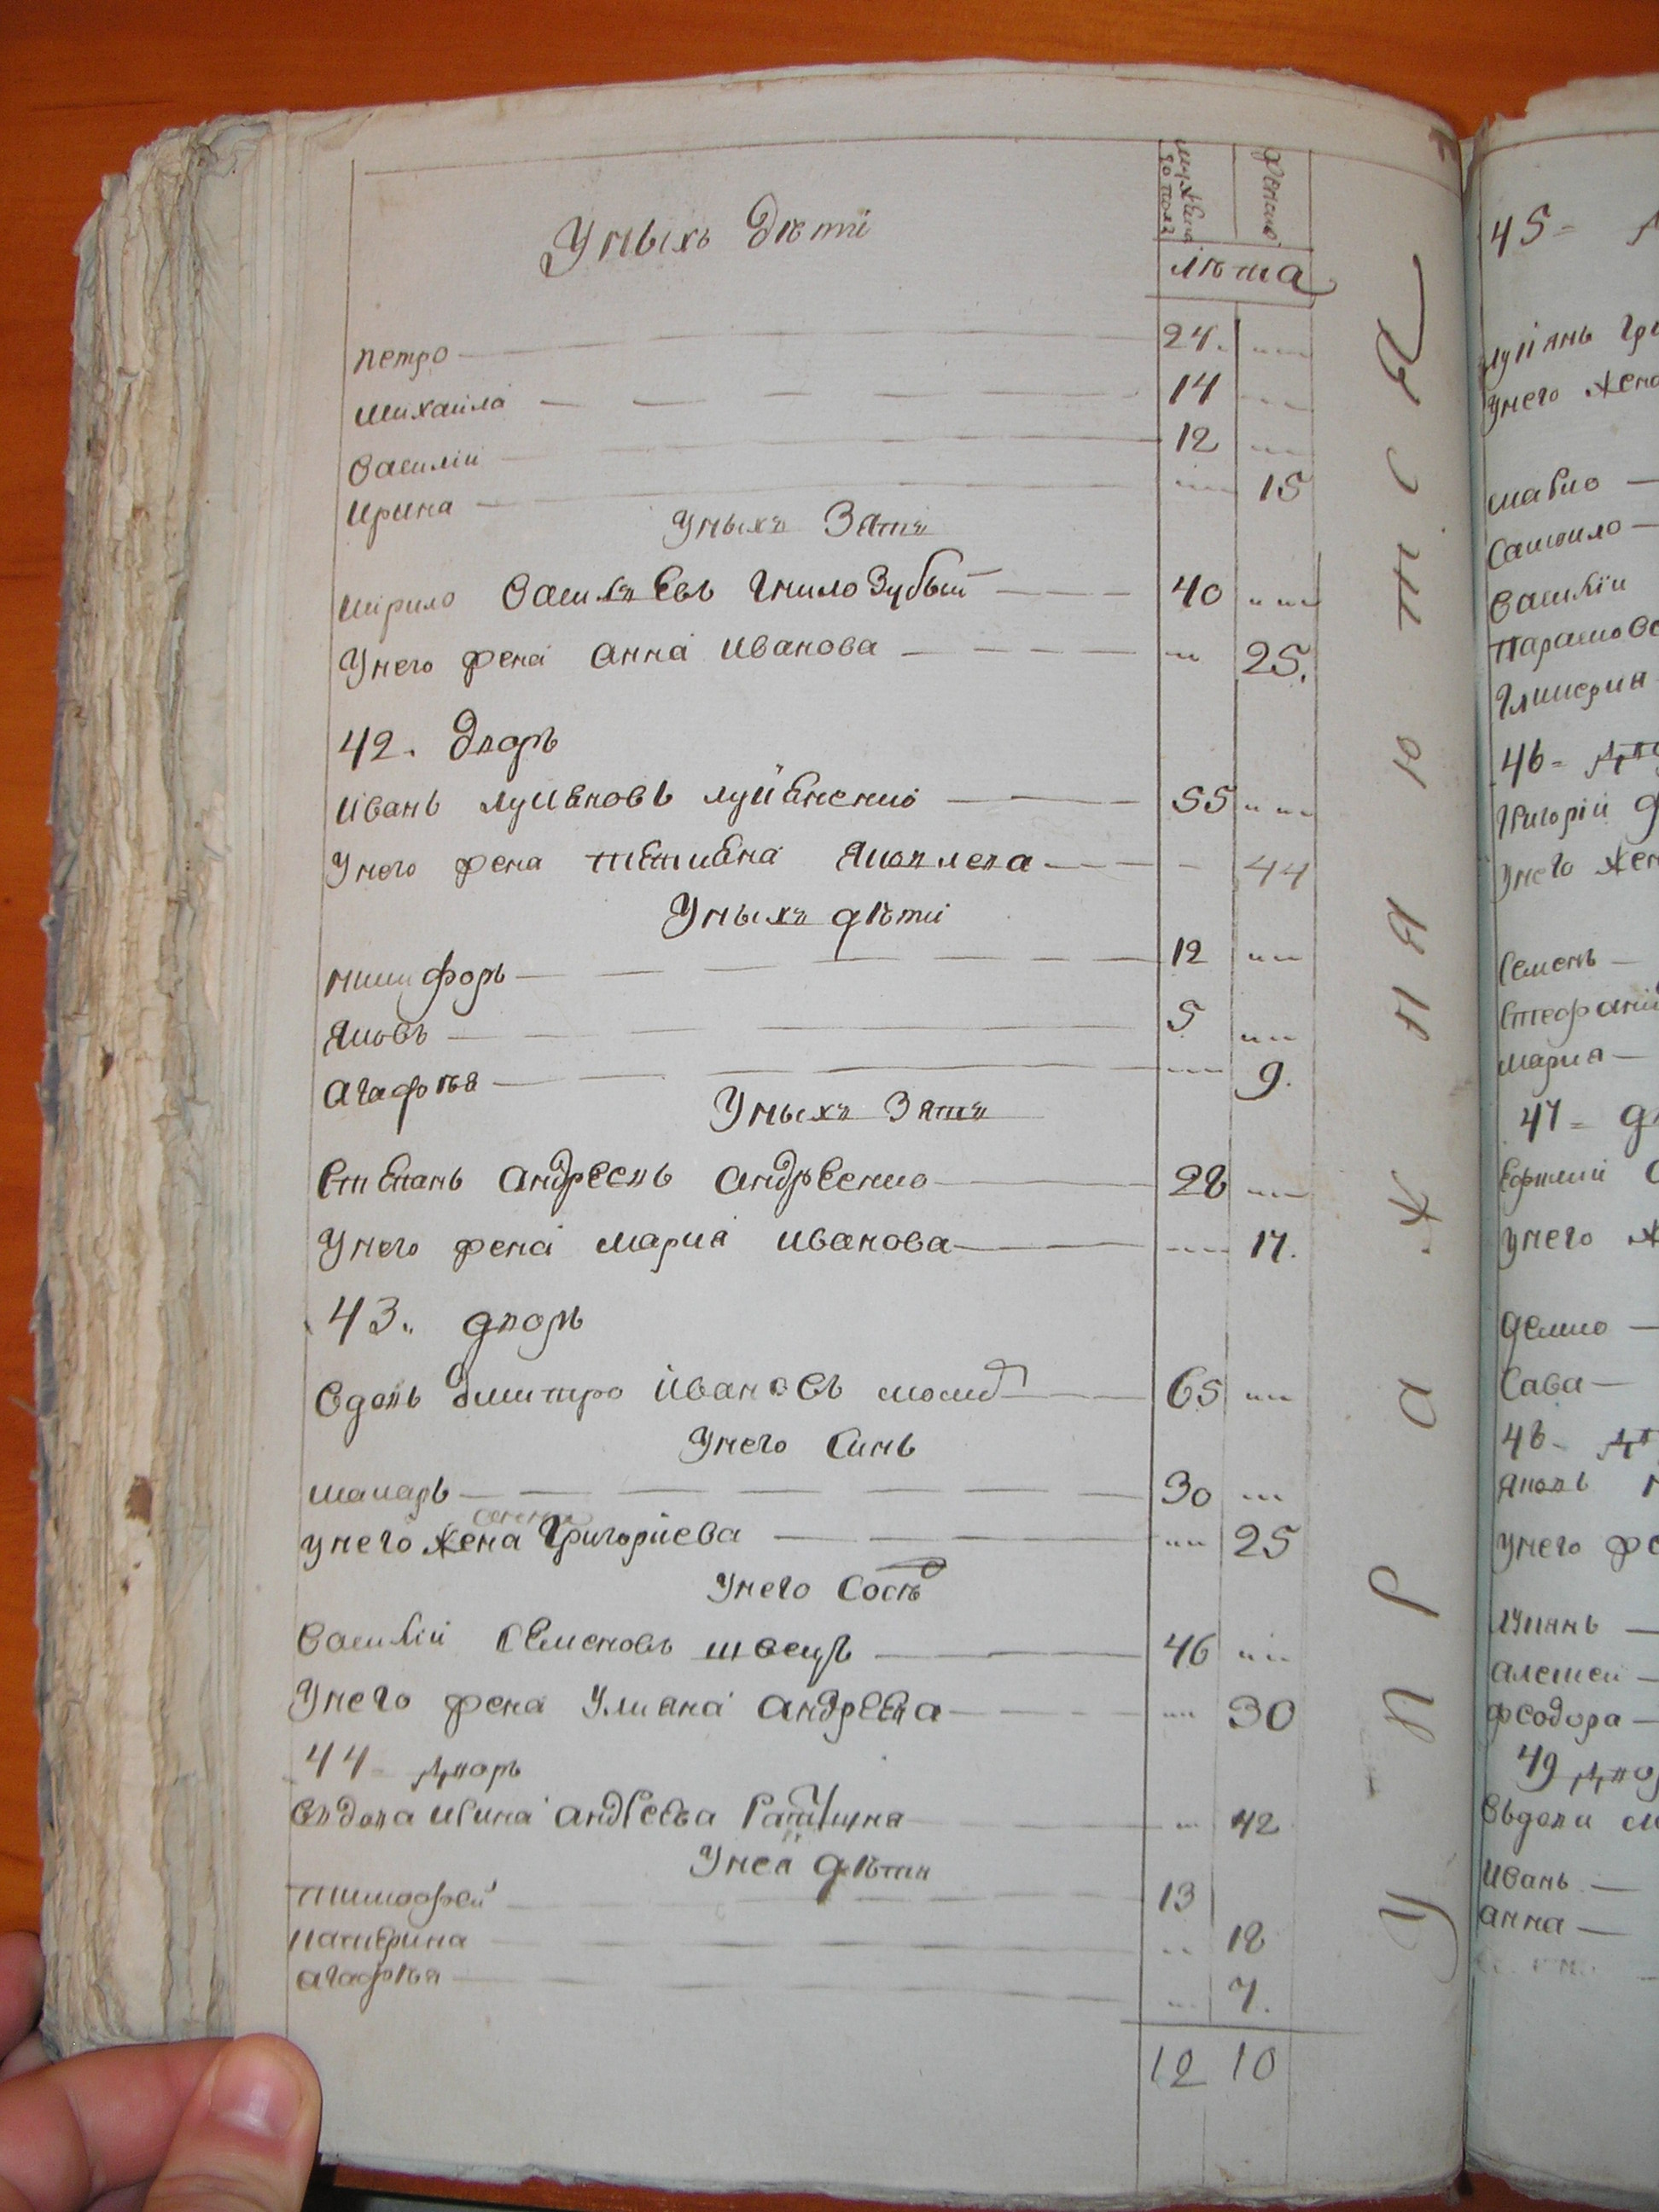 мужеска
полъ
женска
лѣта
Унихъ дѣти
Петро 24.
Михайла 14
Василій 12
Ирина 15
Унихъ Зять
Кирило Васильевъ Гнилозубый 40
Унего жена Анна Иванова 25.
42. дворъ
Иванъ Лукьяновъ Лукьяненко 55
Унего жена Татияна Яковлева 44
Унихъ дѣти
Никифоръ 12
Яковъ 5
Агафѣя 9.
Унихъ Зять
Степанъ Андреевъ Андреенко 28
Унего жена Мария Иванова 17.
43. дворъ
Вдовъ Дмитро Ивановъ 65
Унего Синъ
Макаръ 30
Унего жена Григориева 25
Унего Сосѣд
Василій Семеновъ Швецъ 46
Унего жена Улияна Андреева 30
44 дворъ
Вдова Ирина Андреева 42
Унея дѣти
Тимофей 13
Катерина 18
Агафѣя 7.
12 10
45
Унего жена
Павло
Самойло
Василій
Парасковія
Гликерия
46
Григорій
Унего жен
Семенъ
Стефаній
Мария
47
Унего
Демко
Сава
48
Яковъ
Унего
Лукянъ
Алексей
Феодора
49
Вдова
Иванъ
Анна